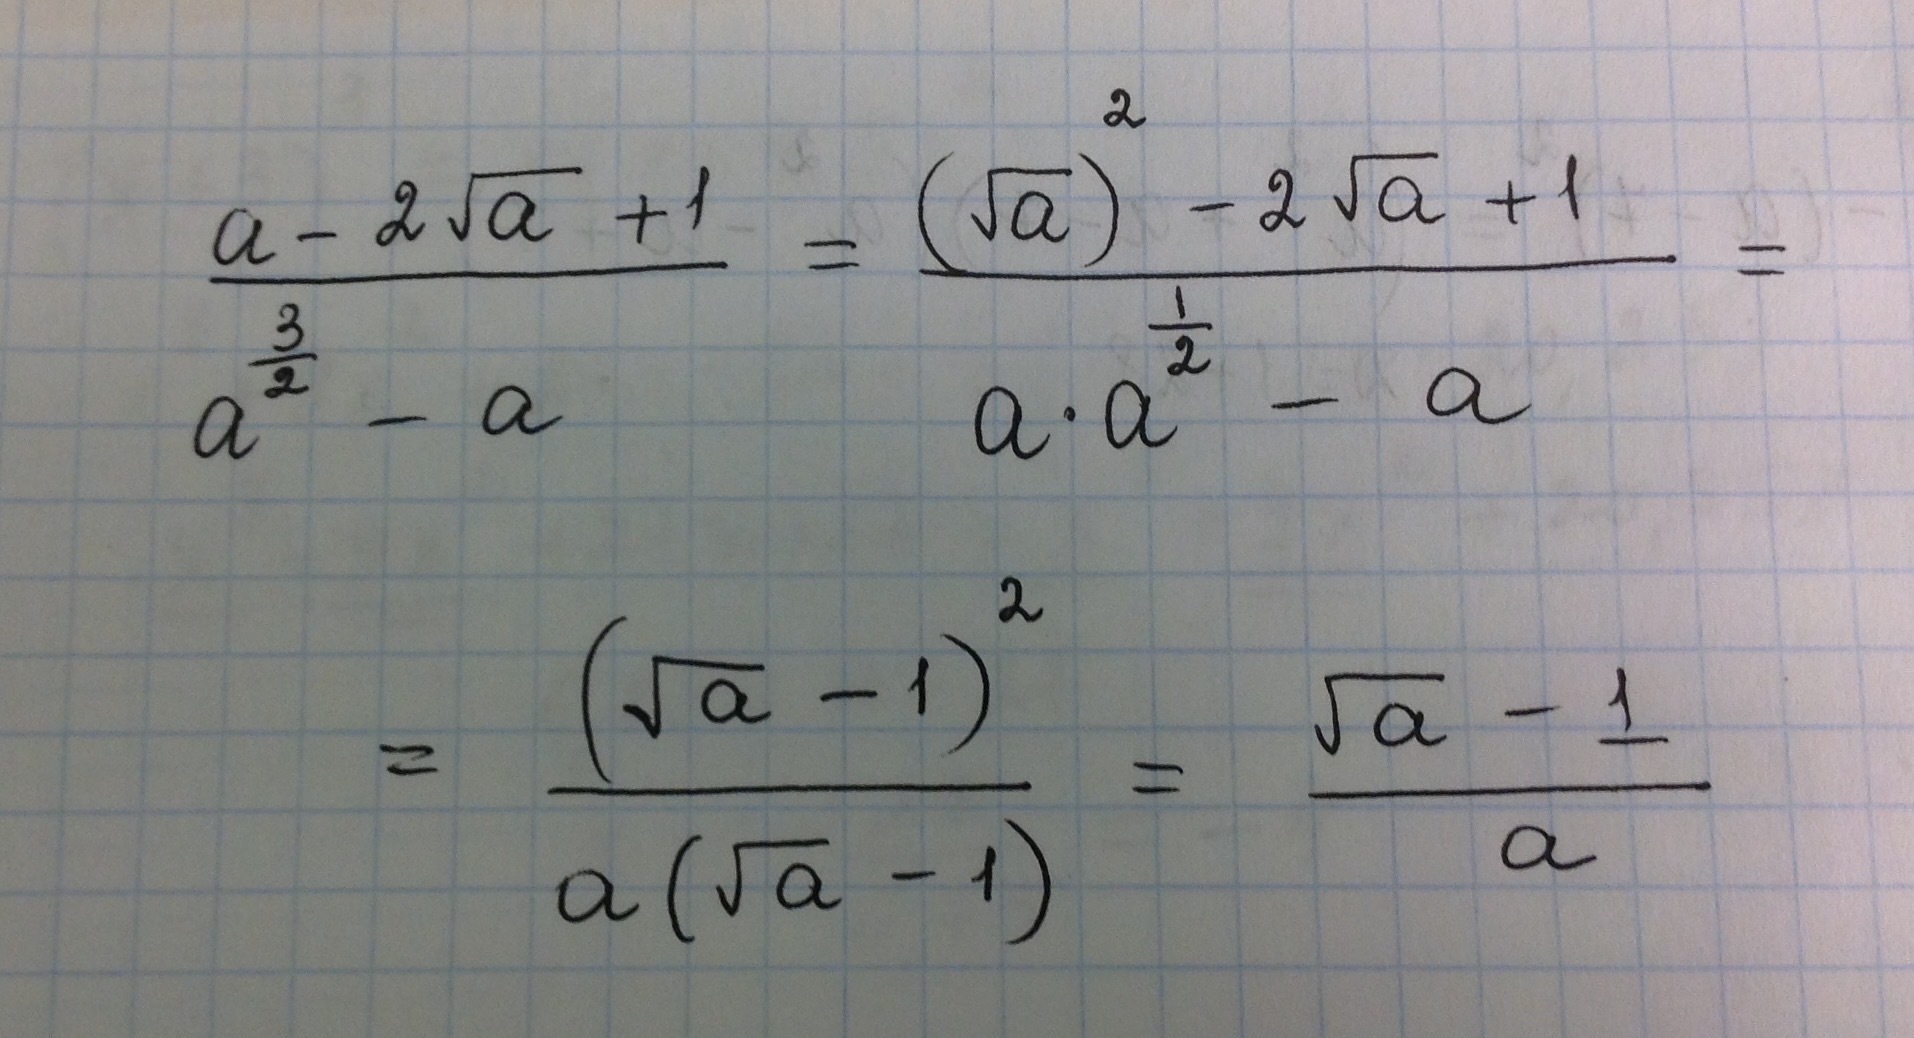 (a - 2√a + 1)/(a^(3/2) - a) = ((√a)^2 - 2√a + 1)/(a · a^(1/2) - a) =
= (√a - 1)^2/(a(√a - 1)) = (√a - 1)/a